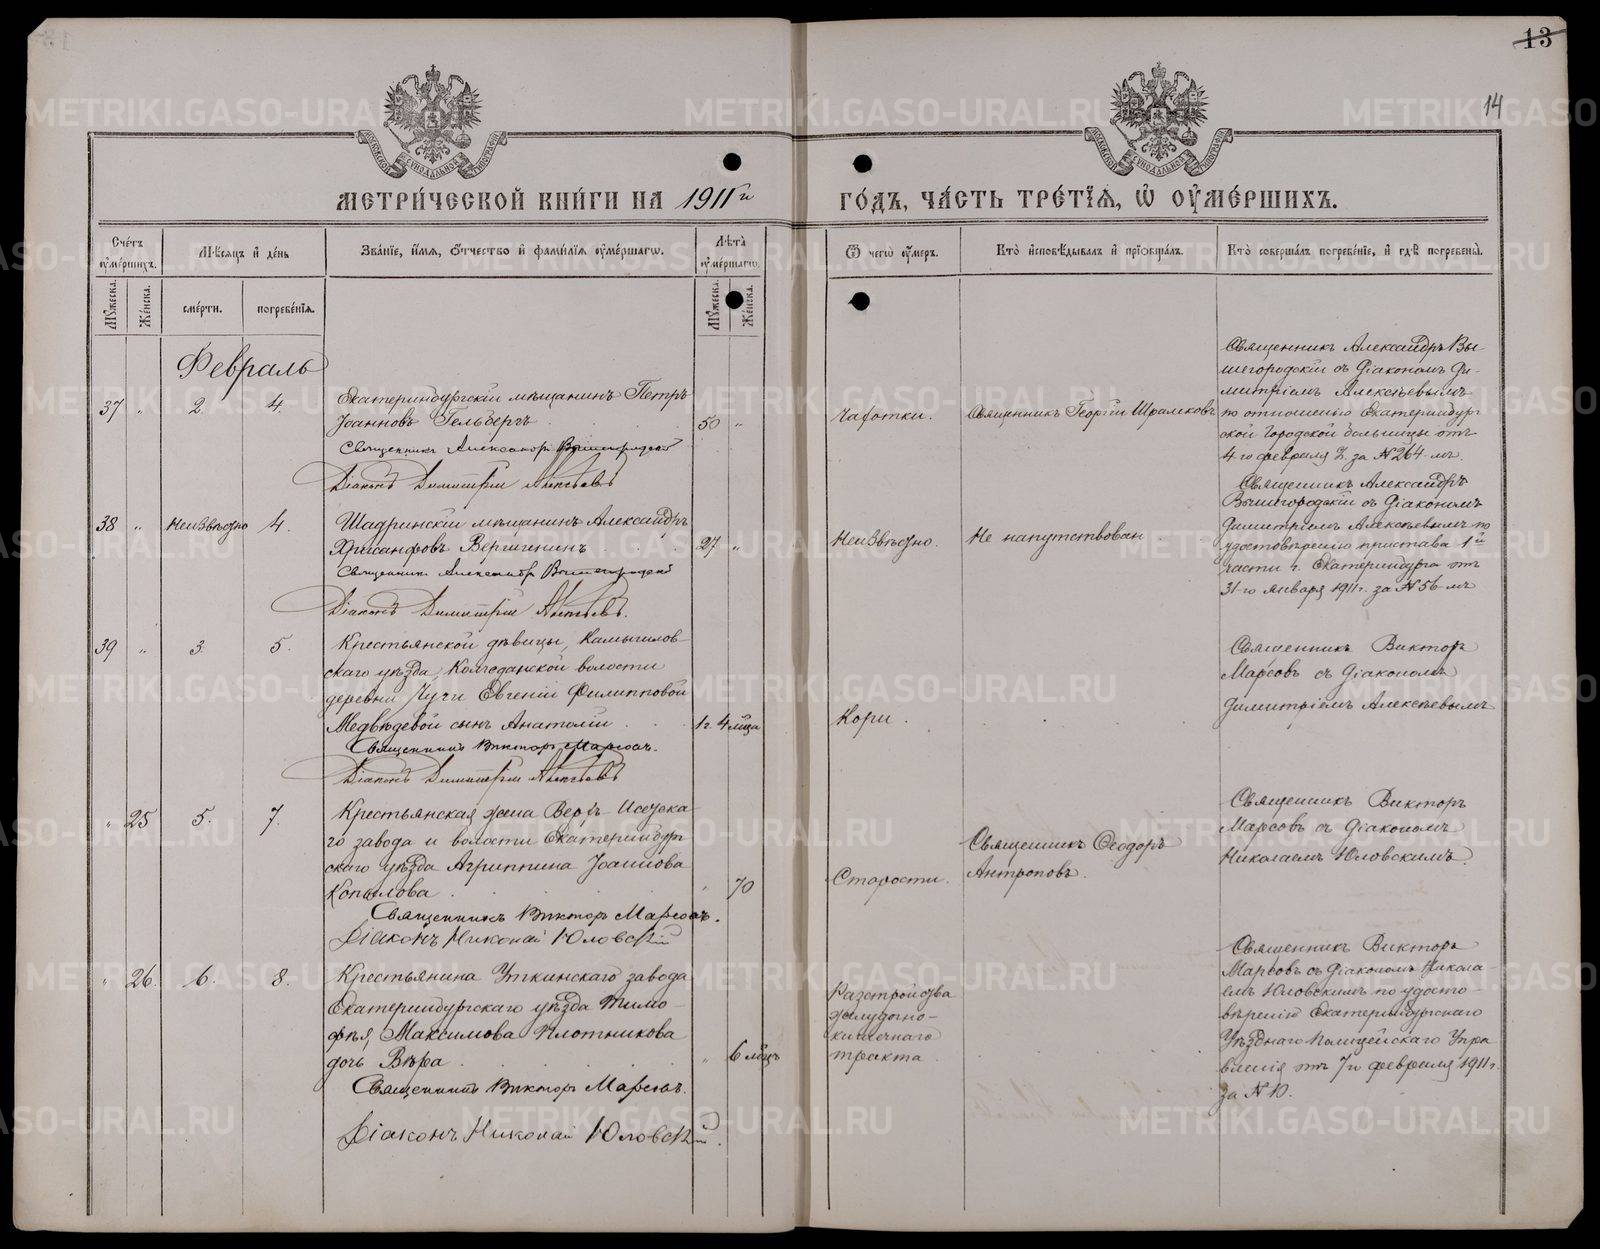 13
14
МЕТРИ́ЧЕСКОЙ КНИ́ГИ НА 1911й
ГО́ДЪ, ЧА́СТЬ ТРЕ́ТІѦ, Ѡ҆ ОУ҆МЕ́РШИХЪ.
Сче́тъ оу҆ме́ршихъ.
Мѣ́сяцъ и҆ де́нь
Зва́ніе, и҆́мя, ѻ҆́тчество и҆ фами́лія оу҆ме́ршагѡ.
Лѣ́та оу҆ме́ршагѡ
Ѿ чегѡ̀ оу҆́меръ.
Кто̀ и҆сповѣ́дывалъ и҆ прїѡбща́лъ.
Кто̀ соверша́лъ погребе́ніе, и҆ гдѣ̀ погребены̀.
Мꙋ́жеска.
Же́нска.
сме́рти.
погребе́нїя.
Мꙋ́жеска.
Же́нска.
Февраль
37 " 2. 4.
Екатеринбургскій мѣщанинъ Петръ
Іоанновъ Гельбергъ
50 "
Священникъ Александръ Вышегородскій
Діаконъ Димитрій Алексѣевъ
Чахотки.
Священникъ Георгій Шрамковъ
Священникъ Александръ Вы
шегородскій съ Діакономъ Ди-
митріемъ Алексѣевымъ
по отношенію Екатеринбург
ской городской больницы отъ
4-го февраля за №264-мъ.
38 " Неизвѣстно 4.
Шадринскій мѣщанинъ Александръ
Хрисанфовъ Вершининъ
27 "
Священникъ Александръ Вышегородскій
Діаконъ Димитрій Алексѣевъ.
Неизвѣстно.
Не напутствован
Священникъ Александръ
Вышегородскій съ Діакономъ
Димитріемъ Алексѣевымъ по
удостовѣренію пристава 1й
части г. Екатеринбурга отъ
31-го января 1911 г. за №56-мъ
39 " 3. 5.
Крестьянской дѣвицы, Камышлов-
скаго уѣзда, Колчеданской волости
деревни Чучи Евгеніи Филипповой
Медвѣдевой сынъ Анатолій
1 г. 4 мѣца
Священникъ Викторъ Марсовъ.
Діаконъ Димитрій Алексѣевъ
Кори.
Священникъ Викторъ
Марсовъ съ Діакономъ
Димитріемъ Алексѣевымъ
" 25 5. 7.
Крестьянская жена Верхъ-Исетска
го завода и волости Екатеринбург
скаго уѣзда Агриппина Іоаннова
Копылова
" 70
Священникъ Викторъ Марсовъ.
Діаконъ Николай Юловскій
Старости.
Священникъ Ѳеодоръ
Антроповъ.
Священникъ Викторъ
Марсовъ съ Діакономъ
Николаемъ Юловскимъ.
" 26. 6. 8.
Крестьянина Уткинскаго завода
Екатеринбургскаго уѣзда Тимо-
фѣя Максимова Плотникова
дочь Вѣра
" 6 мѣцъ
Священникъ Викторъ Марсовъ.
Діаконъ Николай Юловскій.
Разстройства
желудочно-
кишечнаго
тракта
Священникъ Викторъ
Марсовъ съ Діакономъ Никола-
емъ Юловскимъ по удосто-
вѣренію Екатеринбургскаго
Уѣзднаго Полицейскаго Упра
вленія отъ 7го февраля 1911 г.
за № 10.
METRIKI.GASO-URAL.RU